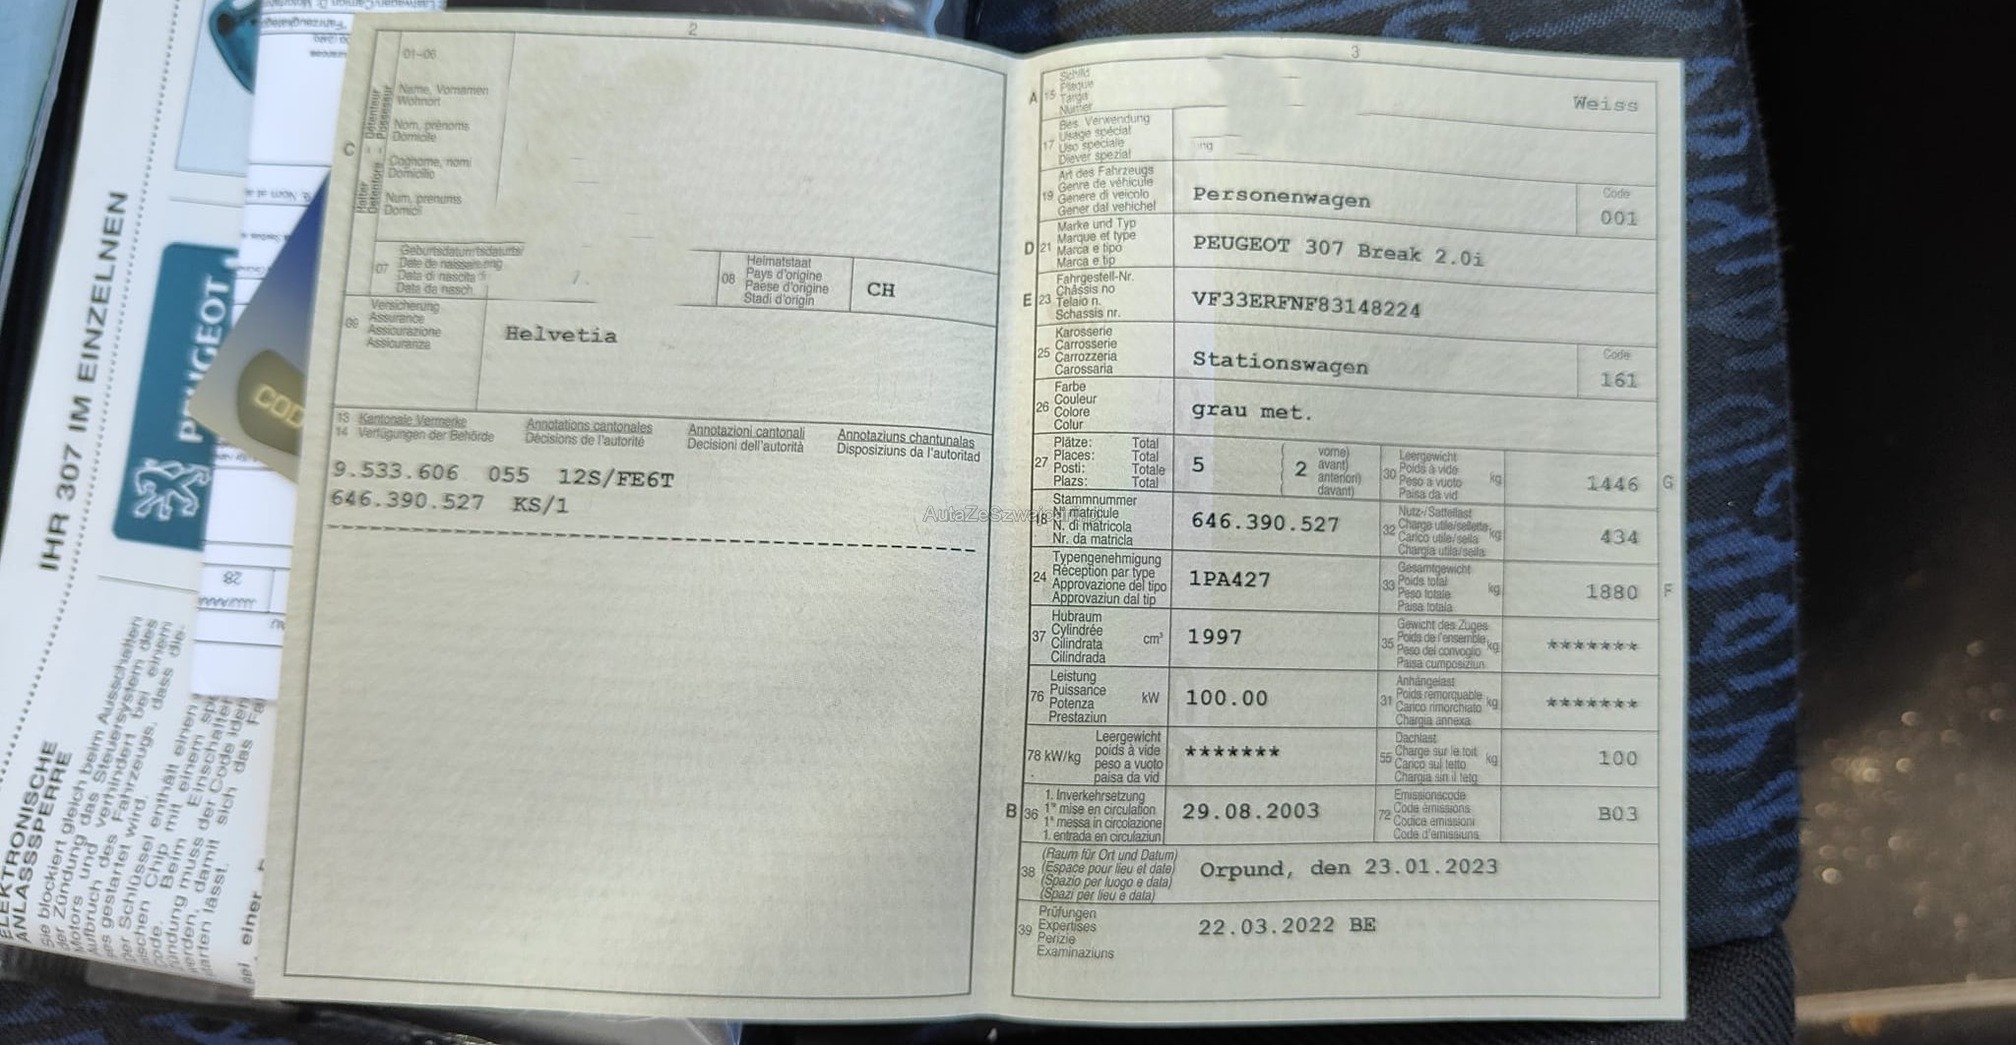 2
01-06
C
Halter
Détenteur
Detentore
Possessur
Name, Vornamen
Wohnort
Nom, prénoms
Domicile
Cognome, nomi
Domicilio
Num, prenums
Domicil
07
Geburtsdatum
Date de naissance
Data di nascita
Data da nasch.
08
Heimatstaat
Pays d'origine
Paese d'origine
Stadi d'origin
CH
09
Versicherung
Assurance
Assicurazione
Assicuranza
Helvetia
13 Kantonale Vermerke Annotations cantonales Annotazioni cantonali Annotaziuns chantunalas
14 Verfügungen der Behörde Décisions de l'autorité Decisioni dell'autorità Disposiziuns da l'autoritad
9.533.606 055 12S/FE6T
646.390.527 KS/1
AutaZeSzwajcarii
3
A 15
Schild
Plaque
Targa
Numer
Weiss
17
Bes. Verwendung
Usage spécial
Uso speciale
Diever spezial
19
Art des Fahrzeugs
Genre de véhicule
Genere di veicolo
Gener dal vehichel
Personenwagen
Code
001
D 21
Marke und Typ
Marque et type
Marca e tipo
Marca e tip
PEUGEOT 307 Break 2.0i
E 23
Fahrgestell-Nr.
Châssis no
Telaio n.
Schassis nr.
VF33ERFNF83148224
25
Karosserie
Carrosserie
Carrozzeria
Carossaria
Stationswagen
Code
161
26
Farbe
Couleur
Colore
Colur
grau met.
27
Plätze: Total
Places: Total
Posti: Totale
Plazs: Total
5
2
vorne)
avant)
anteriori)
davant)
30
Leergewicht
Poids à vide
Peso a vuoto
Paisa da vid
kg
1446 G
18
Stammnummer
N° matricule
N. di matricola
Nr. da matricla
646.390.527
32
Nutz-/Sattellast
Charge utile/sellette
Carico utile/sella
Chargia utila/sella
kg
434
24
Typengenehmigung
Réception par type
Approvazione del tipo
Approvaziun dal tip
1PA427
33
Gesamtgewicht
Poids total
Peso totale
Paisa totala
kg
1880 F
37
Hubraum
Cylindrée
Cilindrata
Cilindrada
cm³
1997
35
Gewicht des Zuges
Poids de l'ensemble
Peso del convoglio
Paisa cumposiziun
kg
*******
76
Leistung
Puissance
Potenza
Prestaziun
kW
100.00
31
Anhängelast
Poids remorquable
Carico rimorchiato
Chargia annexa
kg
*******
78 kW/kg
Leergewicht
poids à vide
peso a vuoto
paisa da vid
*******
55
Dachlast
Charge sur le toit
Carico sul tetto
Chargia sin il tetg
kg
100
B 36
1. Inverkehrsetzung
1re mise en circulation
1a messa in circolazione
1. entrada en circulaziun
29.08.2003
72
Emissionscode
Code émissions
Codice emissioni
Code d'emissiuns
B03
38
(Raum für Ort und Datum)
(Espace pour lieu et date)
(Spazio per luogo e data)
(Spazi per lieu e data)
Orpund, den 23.01.2023
39
Prüfungen
Expertises
Perizie
Examinaziuns
22.03.2022 BE
IHR 307 IM EINZELNEN
PEUGEOT
COD
28
ELEKTRONISCHE
ANLASSSPERRE